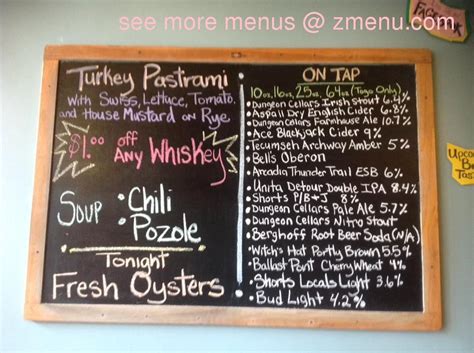 see more menus @ zmenu.com
Turkey Pastrami
With Swiss, Lettuce, Tomato,
and House Mustard on Rye
$1.00 off
Any Whiskey
Soup • Chili
• Pozole
Tonight
Fresh Oysters
On Tap
10oz, 16oz, 25oz, 64oz (Togo Only)
• Dungeon Cellars Irish Stout 6.4%
• Aspall Dry English Cider 6.8%
• Dungeon Cellars Farmhouse Ale 10.7%
• Ace Blackjack Cider 9%
• Tecumseh Archway Amber 5%
• Bell's Oberon
• Arcadia Thunder Trail ESB 6%
• Unita Detour Double IPA 8.4%
• Shorts P/B+J 8%
• Dungeon Cellars Pale Ale 5.7%
• Dungeon Cellars Nitro Stout
• Berghoff Root Beer Soda (N/A)
• Witch's Hat Portly Brown 5.5%
• Ballast Point Cherry Wheat 4%
• Shorts Locals Light 3.6%
• Bud Light 4.2%
Facebook